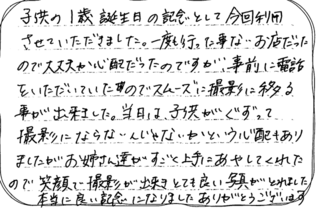 子供の1歳誕生日の記念として今回利用
させていただきました。一度も行った事ないお店だった
のでススメか心配だったのですが、事前に電話
をいただいていたのでスムーズに撮影に移る
事が出来ました。当日は、子供がぐずって
撮影にならないんじゃないかという心配もあり
ましたがお姉さん達がすごく上手にあやしてくれた
ので笑顔で撮影が出来とても良い写真がとれました
本当に良い記念になりましたありがとうございます